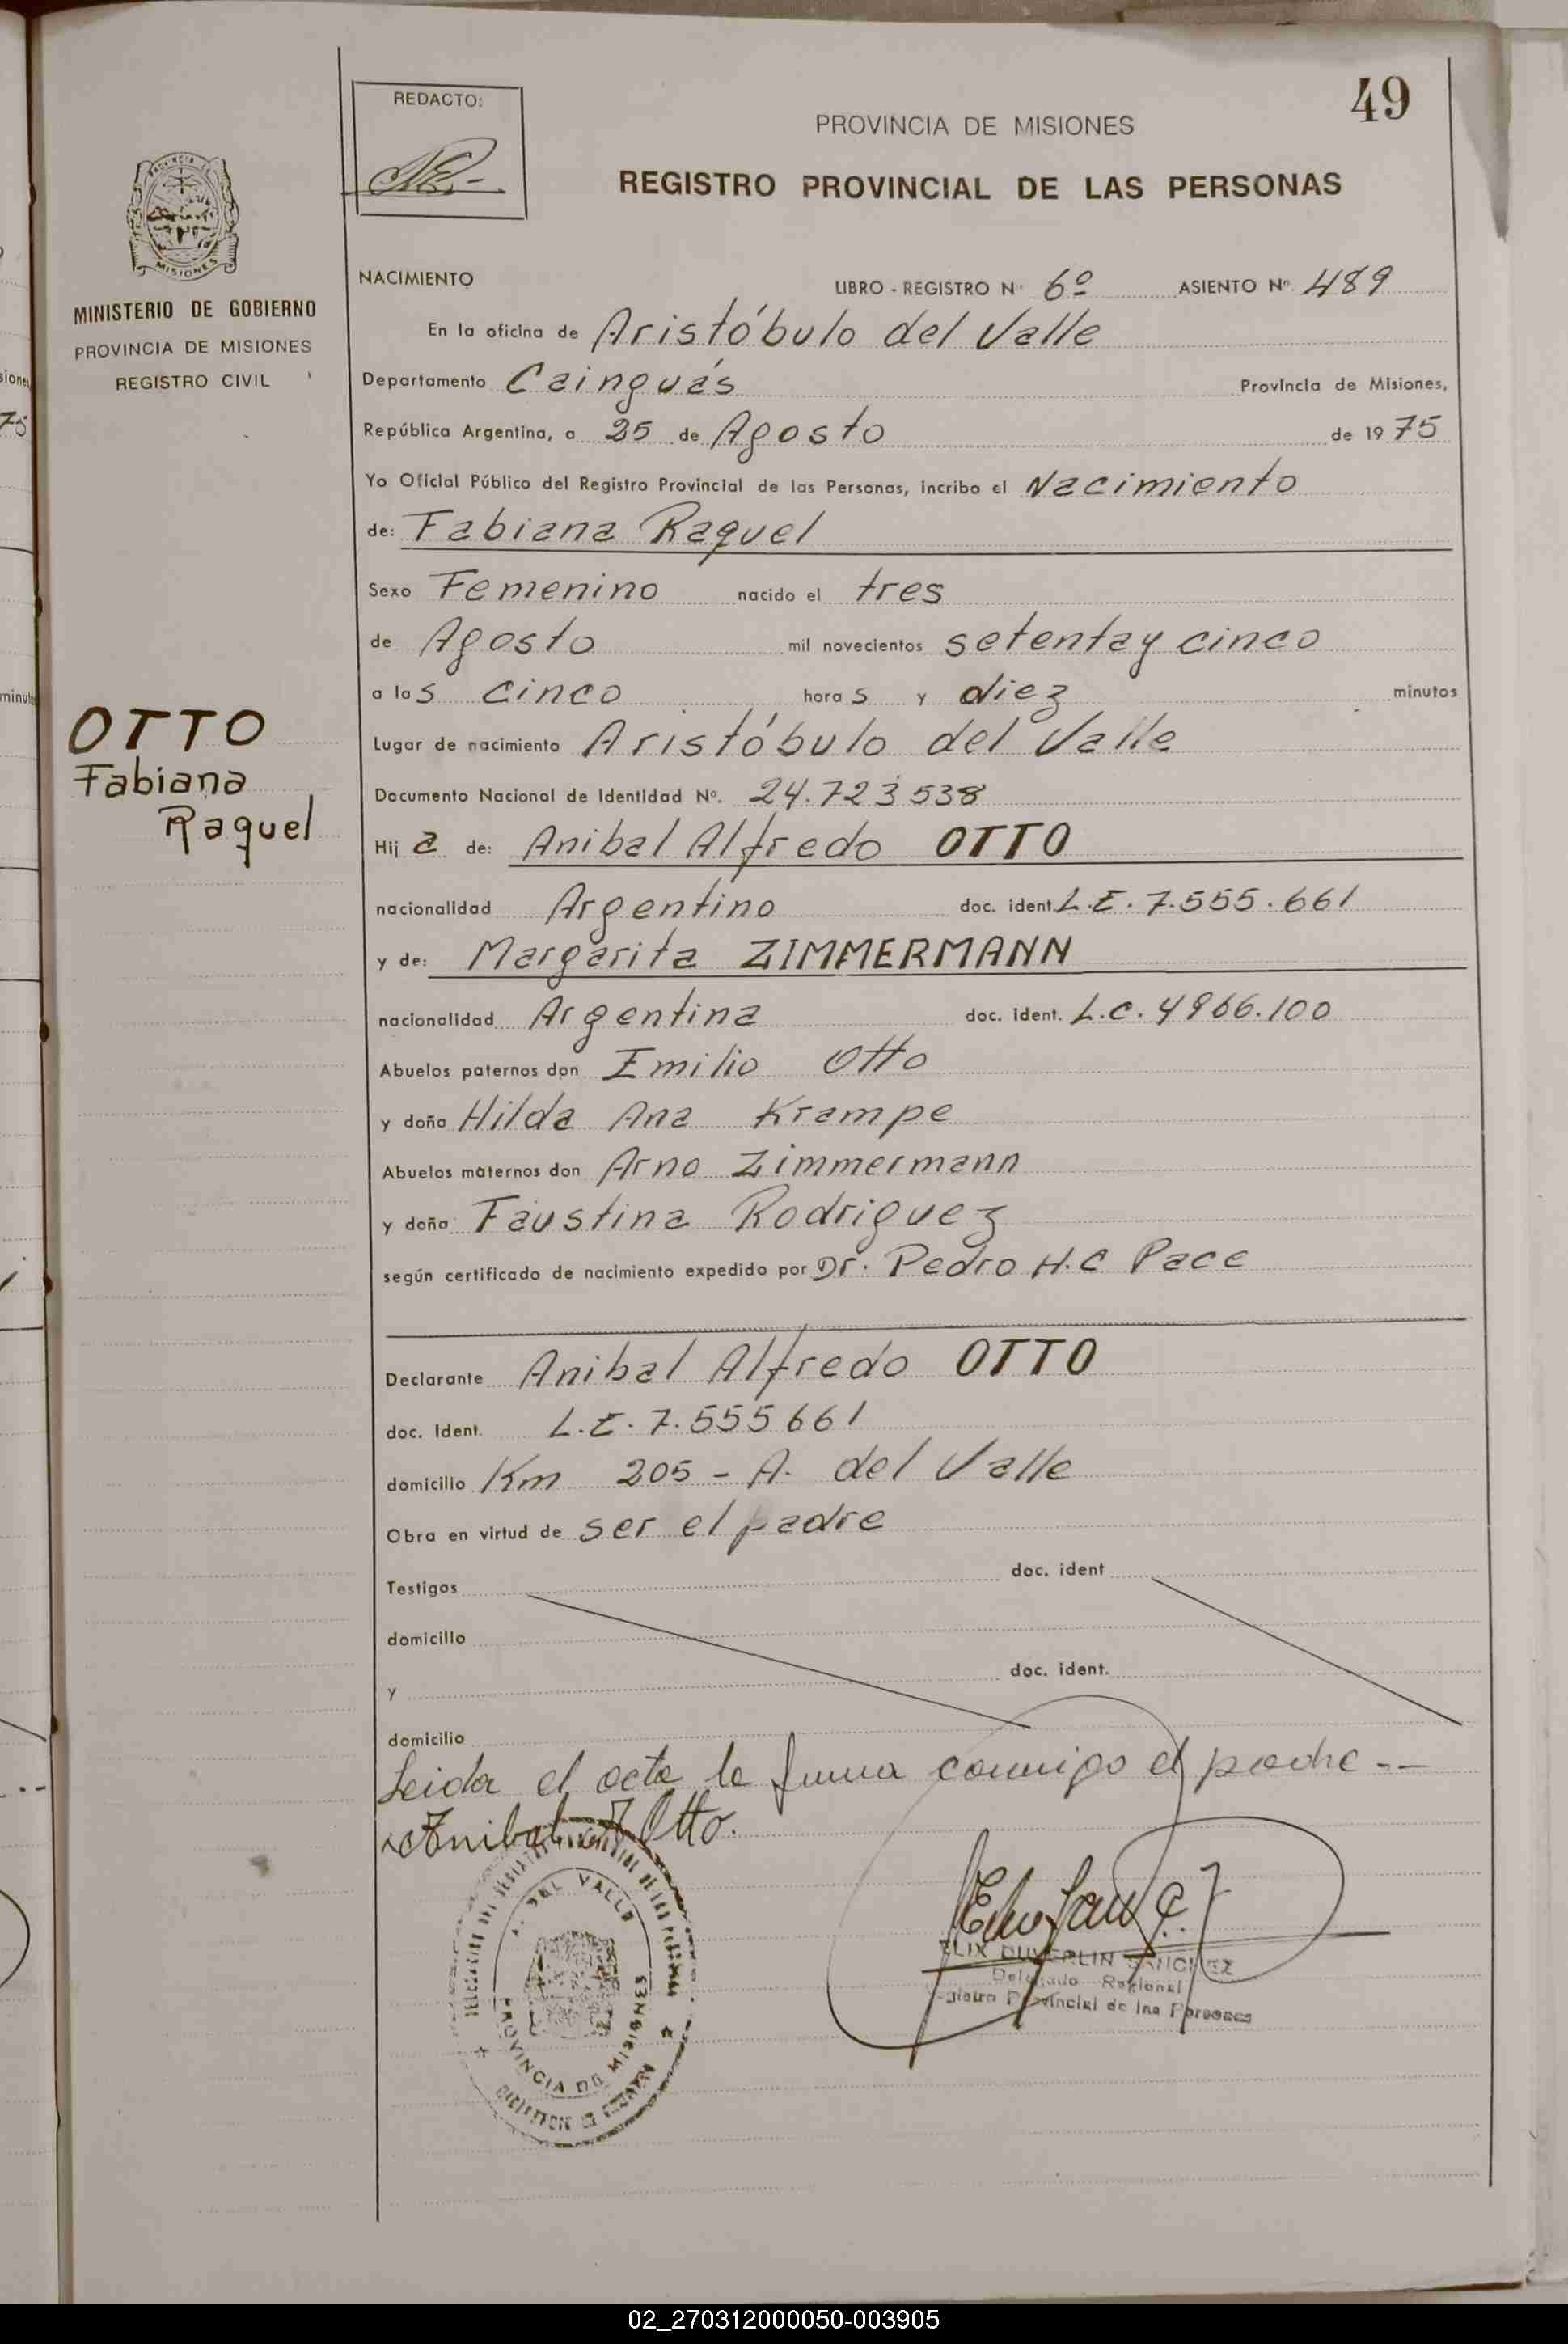 49
REDACTO:
PROVINCIA DE MISIONES
REGISTRO PROVINCIAL DE LAS PERSONAS
PROVINCIA DE
MISIONES
MINISTERIO DE GOBIERNO
PROVINCIA DE MISIONES
REGISTRO CIVIL
NACIMIENTO LIBRO - REGISTRO Nº 6º ASIENTO Nº 489
En la oficina de Aristóbulo del Valle
Departamento Cainguás Provincia de Misiones,
República Argentina, a 25 de Agosto de 1975
Yo Oficial Público del Registro Provincial de las Personas, incribo el Nacimiento
de: Fabiana Raquel
Sexo Femenino nacido el tres
de Agosto mil novecientos setenta y cinco
a las cinco horas y diez minutos
OTTO
Fabiana
Raquel
Lugar de nacimiento Aristóbulo del Valle
Documento Nacional de Identidad Nº. 24.723538
Hija de: Anibal Alfredo OTTO
nacionalidad Argentino doc. ident. L.E. 7.555.661
y de: Margarita ZIMMERMANN
nacionalidad Argentina doc. ident. L.C. 4966.100
Abuelos paternos don Emilio Otto
y doña Hilda Ana Krampe
Abuelos maternos don Arno Zimmermann
y doña Faustina Rodriguez
según certificado de nacimiento expedido por Dr. Pedro H.C Pace
Declarante Anibal Alfredo OTTO
doc. Ident. L.E. 7.555661
domicilio Km 205 - A. del Valle
Obra en virtud de ser el padre
Testigos doc. ident
domicilio
y doc. ident.
domicilio
Leida el acta la firma conmigo el padre --
Anibal A Otto.
A. DEL VALLE
PROVINCIA DE MISIONES
SANCHEZ
Delegado Regional
Registro Provincial de las Personas
02_270312000050-003905